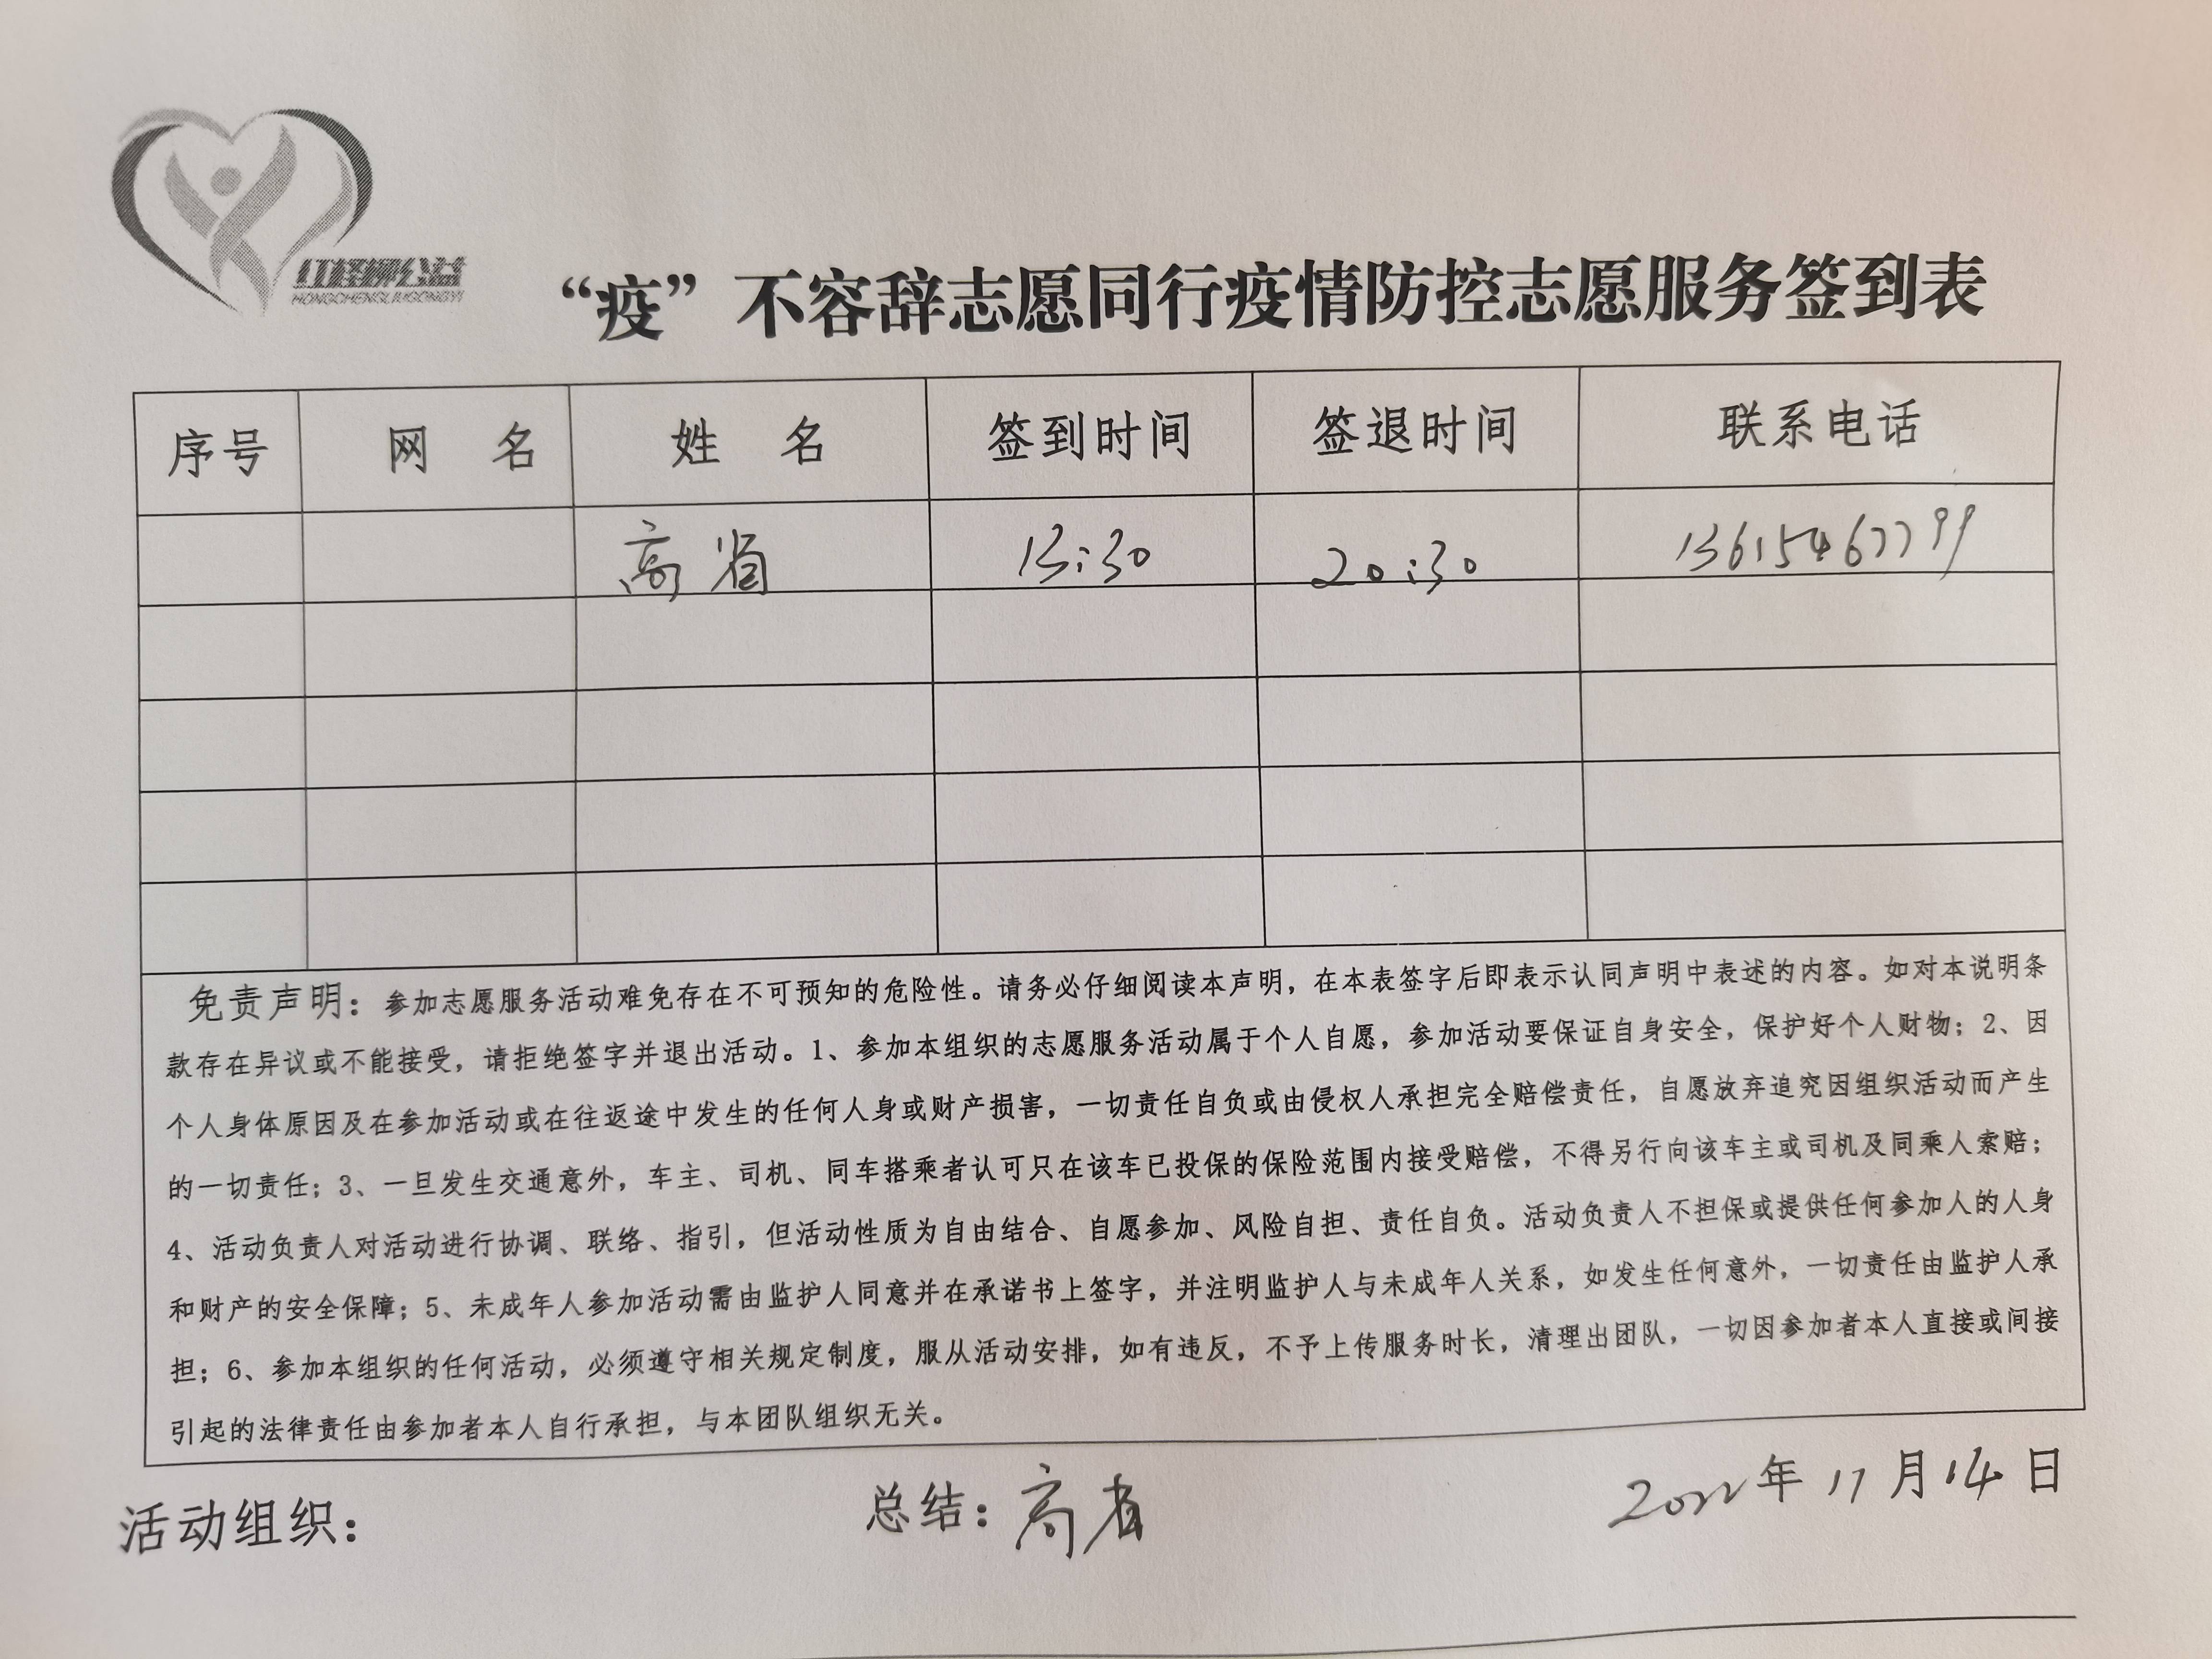 红柽柳公益
HONGCHENGLIUGONGYI
“疫”不容辞志愿同行疫情防控志愿服务签到表
序号 网 名 姓 名 签到时间 签退时间 联系电话
高省 13:30 20:30 13615467799
免责声明：参加志愿服务活动难免存在不可预知的危险性。请务必仔细阅读本声明，在本表签字后即表示认同声明中表述的内容。如对本说明条
款存在异议或不能接受，请拒绝签字并退出活动。1、参加本组织的志愿服务活动属于个人自愿，参加活动要保证自身安全，保护好个人财物；2、因
个人身体原因及在参加活动或在往返途中发生的任何人身或财产损害，一切责任自负或由侵权人承担完全赔偿责任，自愿放弃追究因组织活动而产生
的一切责任；3、一旦发生交通意外，车主、司机、同车搭乘者认可只在该车已投保的保险范围内接受赔偿，不得另行向该车主或司机及同乘人索赔；
4、活动负责人对活动进行协调、联络、指引，但活动性质为自由结合、自愿参加、风险自担、责任自负。活动负责人不担保或提供任何参加人的人身
和财产的安全保障；5、未成年人参加活动需由监护人同意并在承诺书上签字，并注明监护人与未成年人关系，如发生任何意外，一切责任由监护人承
担；6、参加本组织的任何活动，必须遵守相关规定制度，服从活动安排，如有违反，不予上传服务时长，清理出团队，一切因参加者本人直接或间接
引起的法律责任由参加者本人自行承担，与本团队组织无关。
活动组织： 总结：高省 2022年11月14日